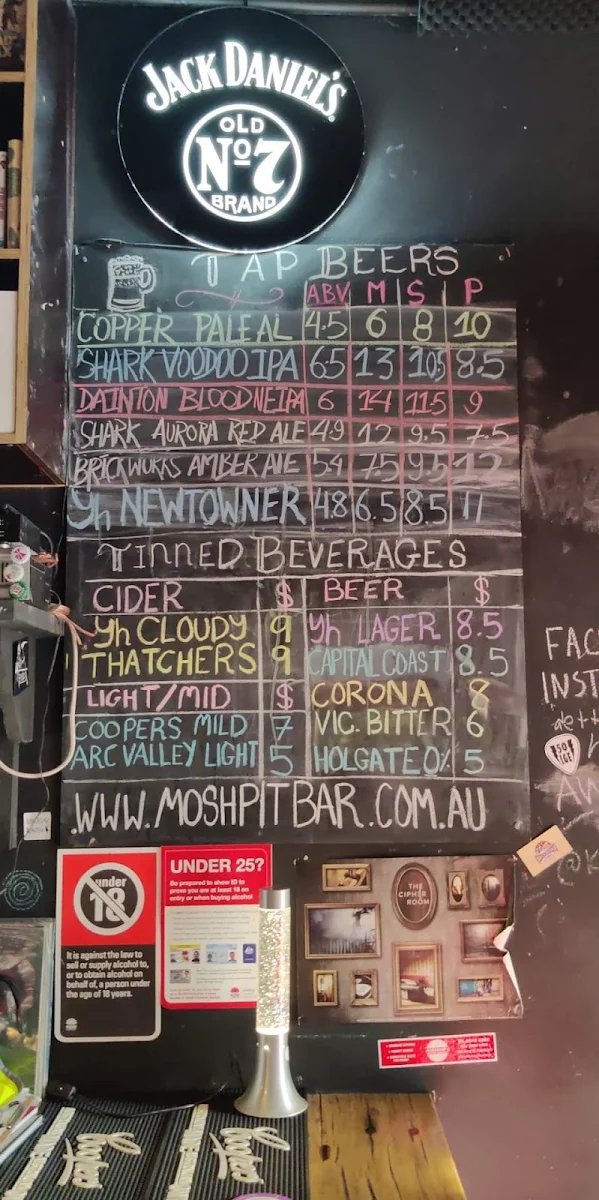 JACK DANIEL'S
OLD
Nº7
BRAND
TAP BEERS
ABV M S P
COPPER PALE AL 4.5 6 8 10
SHARK VOODOO IPA 6.5 13 10.5 8.5
DAINTON BLOOD NEIPA 6 14 11.5 9
SHARK AURORA RED ALE 4.9 12 9.5 7.5
BRICKWORKS AMBER ALE 5.4 7.5 9.5 12
Yh NEWTOWNER 4.8 6.5 8.5 11
TINNED BEVERAGES
CIDER $ BEER $
Yh CLOUDY 9 Yh LAGER 8.5
THATCHERS 9 CAPITAL COAST 8.5
LIGHT/MID $ CORONA 8
COOPERS MILD 7 VIC. BITTER 6
ARC VALLEY LIGHT 5 HOLGATE 0% 5
WWW.MOSHPITBAR.COM.AU
FAC
INST
under
18
It is against the law to
sell or supply alcohol to,
or to obtain alcohol on
behalf of, a person under
the age of 18 years.
UNDER 25?
Be prepared to show ID to
prove you are at least 18 on
entry or when buying alcohol
THE
CIPHER
ROOM